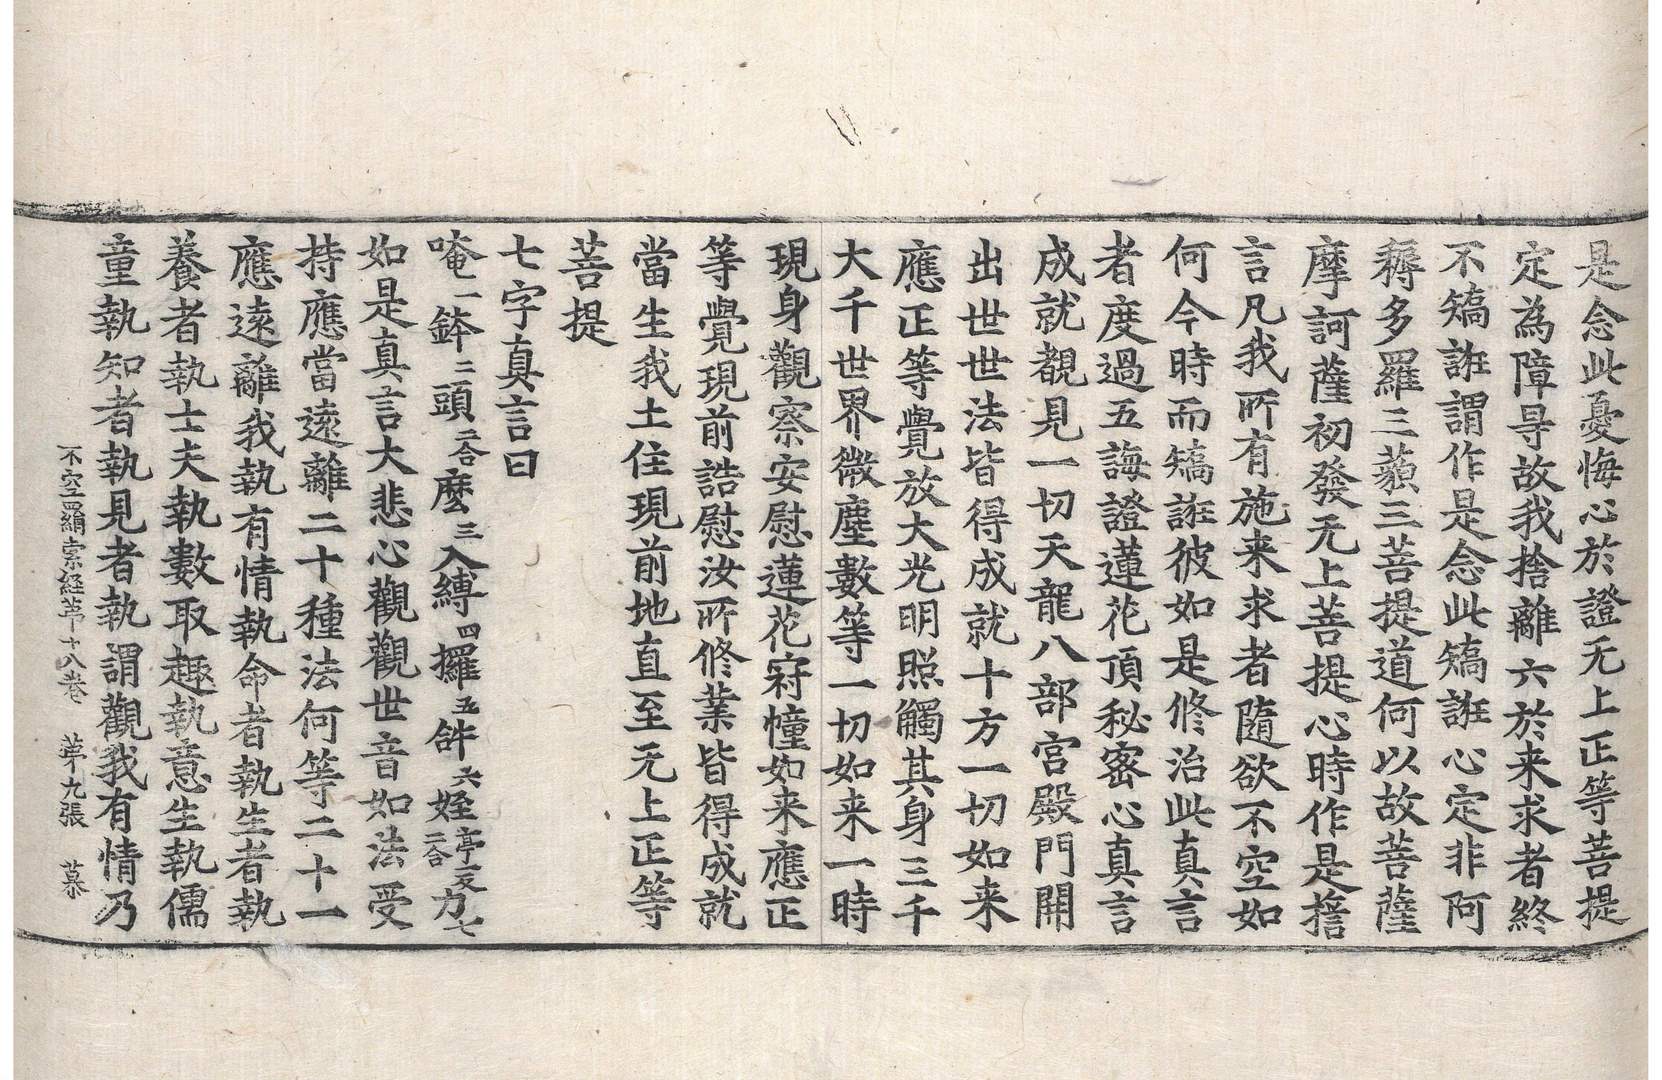 是念此憂悔心於證无上正等菩提
定為障㝵故我捨離六於来求者終
不矯誑謂作是念此矯誑心定非阿
耨多羅三藐三菩提道何以故菩薩
摩訶薩初發无上菩提心時作是擔
言凡我所有施来求者隨欲不空如
何今時而矯誑彼如是修治此真言
者度過五誨證蓮花頂秘密心真言
成就覩見一切天龍八部宮殿門開
出世世法皆得成就十方一切如来
應正等覺放大光明照觸其身三千
大千世界微塵數等一切如来一時
現身觀察安慰蓮花㝛幢如来應正
等覺現前誥慰汝所修業皆得成就
當生我土住現前地直至无上正等
菩提
七字真言曰
唵一鉢二頭二合麽三入縛四攞五𤙖六姪亭夜反二合力七
如是真言大悲心觀觀世音如法受
持應當遠離二十種法何等二十一
應遠離我執有情執命者執生者執
養者執士夫執數取趣執意生執儒
童執知者執見者執謂觀我有情乃
不空羂索経苐十八卷　苐九張　慕